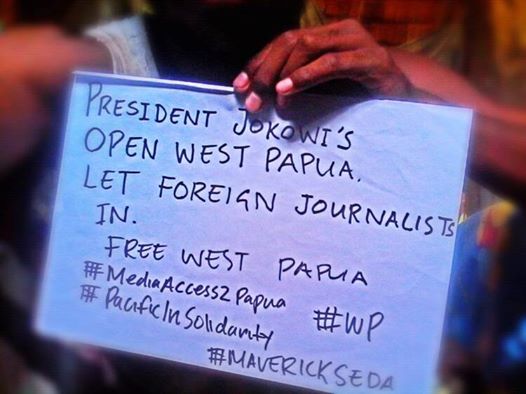 PRESIDENT JOKOWI'S
OPEN WEST PAPUA.
LET FOREIGN JOURNALISTS
IN.
FREE WEST PAPUA
#MediaAccess2Papua #WP
#PacificInSolidarity
#MAVERICKSEDA